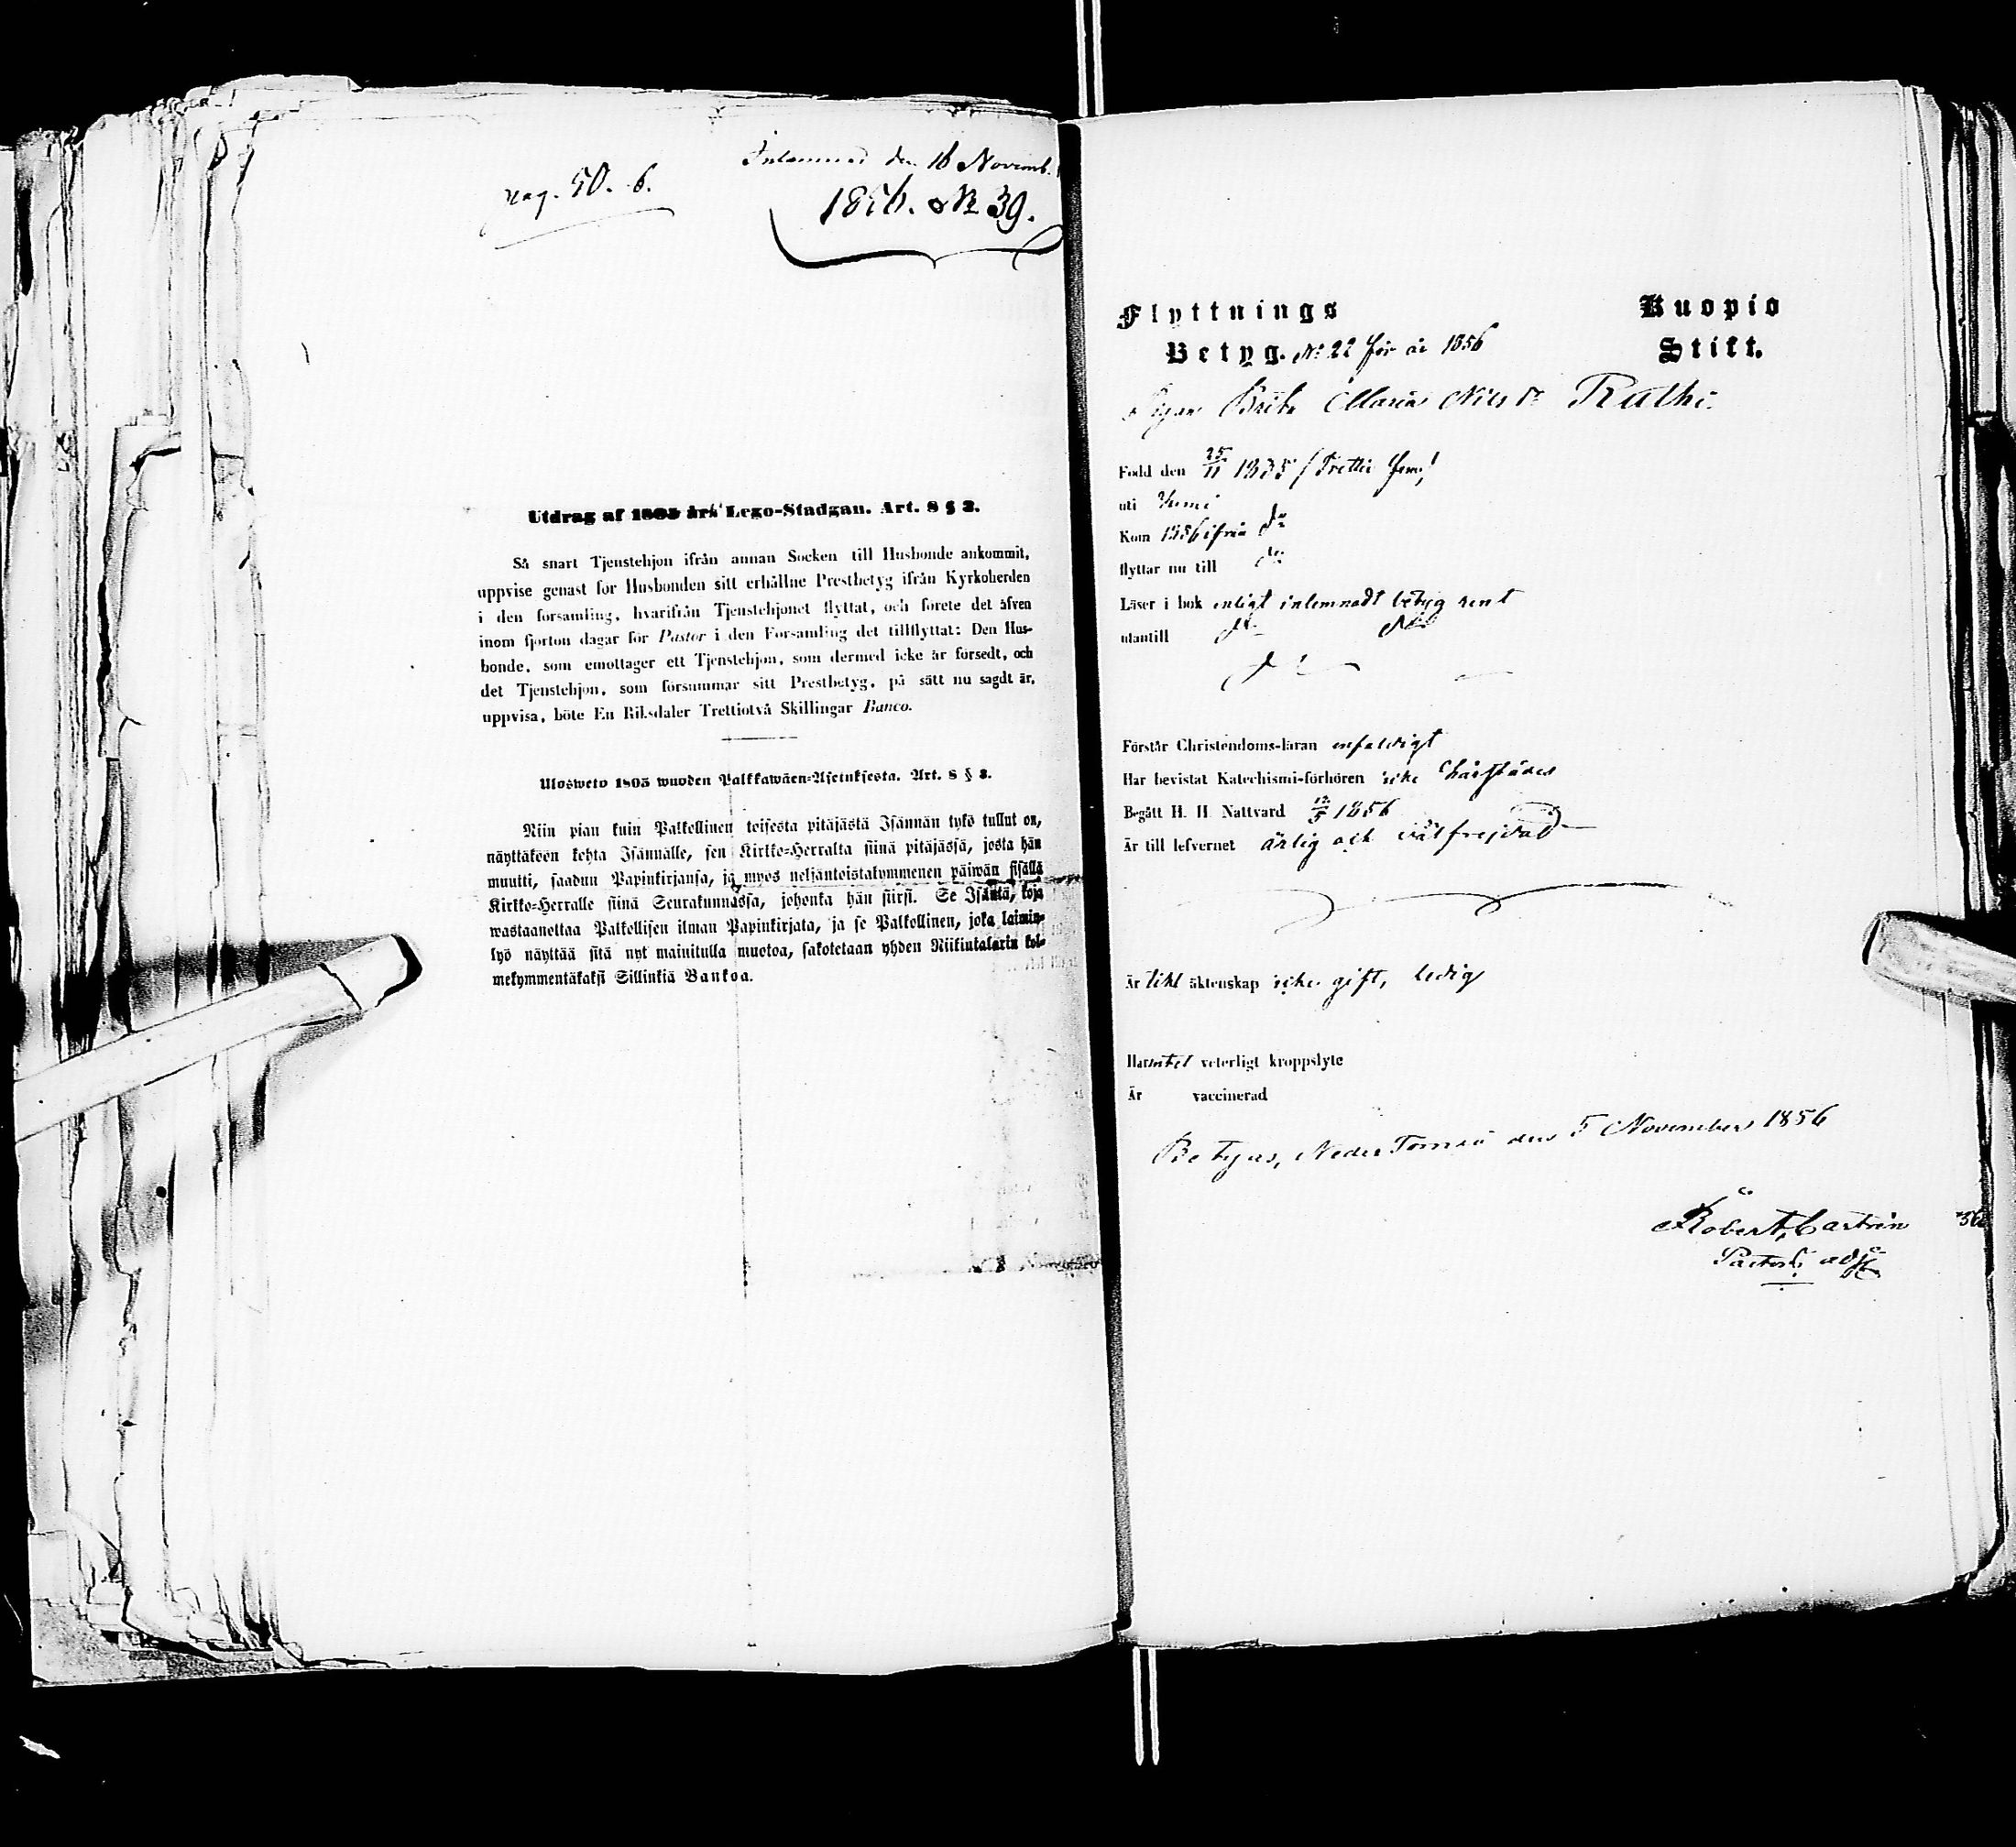 pag. 50. 6.
Inlemnad den 16 Novemb.
1856. № 39.
Utdrag af 1805 års Lego-Stadgan. Art. 8 § 3.
Så snart Tjenstehjon ifrån annan Socken till Husbonde ankommit,
uppvise genast för Husbonden sitt erhållne Prestbetyg ifrån Kyrkoherden
i den församling, hvarifrån Tjenstehjonet flyttat, och förete det äfven
inom fjorton dagar för Pastor i den Församling det tillflyttat: Den Hus-
bonde, som emottager ett Tjenstehjon, som dermed icke är försedt, och
det Tjenstehjon, som försummar sitt Prestbetyg, på sätt nu sagdt är,
uppvisa, böte En Riksdaler Trettiotvå Skillingar Banco.
Ulosweto 1805 wuoden Palkkawäen-Asetuksesta. Art. 8 § 3.
Niin pian kuin Palkollinen toisesta pitäjästä Isännän tykö tullut on,
näyttäköön kohta Isännälle, sen Kirkko-Herralta siinä pitäjässä, josta hän
muutti, saadun Papinkirjansa, ja myös neljäntoistakymmenen päiwän sisällä
Kirkko-Herralle siinä Seurakunnassa, johonka hän siirsi. Se Isäntä, koja
wastaanottaa Palkollisen ilman Papinkirjata, ja se Palkollinen, joka laimin-
lyö näyttää sitä nyt mainitulla muotoa, sakotetaan yhden Riikintalarin kol-
mekymmentäkaksi Sillinkiä Bankoa.
Flyttnings Kuopio
Betyg. № 22 för år 1856 Stift.
Pigan Brita Maria Nilsdr Ruthi.
Född den 25/11 1835 / Trettio fem /
uti Kemi
Kom 1856 ifrån do
flyttar nu till do
Läser i bok enligt inlemnadt betyg rent
utantill do do
Förstår Christendoms-läran enfaldigt
Har bevistat Katechismi-förhören icke härstädes
Begått H. H. Nattvard 12/5 1856
Är till lefvernet ärlig och välfrejdad
Är till äktenskap icke gift, ledig
Har intet veterligt kroppslyte
Är vaccinerad
Betygas, Neder Torneå den 5 November 1856
Robert Castrén
Pastors adj.